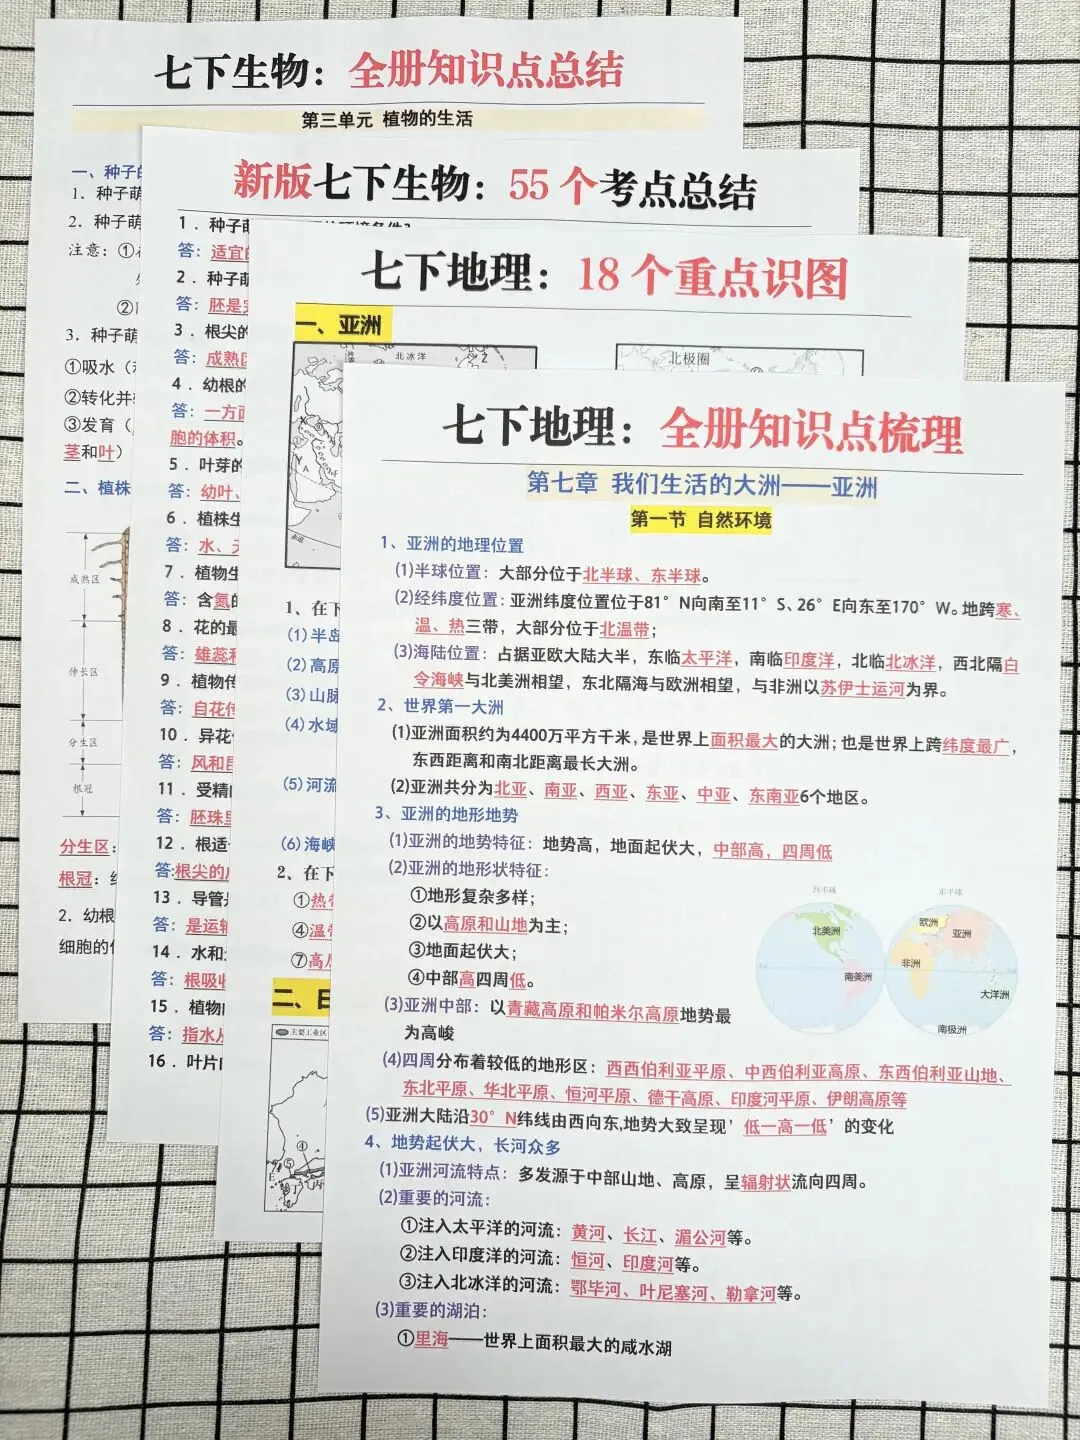 七下生物：全册知识点总结
第三单元 植物的生活
一、种子的
1. 种子萌
2. 种子萌
注意：①
②
3. 种子萌
①吸水（
②转化并
③发育（
茎和叶）
二、植株
成熟区
伸长区
分生区
根冠
分生区：
根冠：
2. 幼根
细胞的
新版七下生物：55个考点总结
1．种子萌
答：适宜的
2．种子萌
答：胚是
3．根尖的
答：成熟区
4．幼根的
答：一方面
胞的体积。
5．叶芽的
答：幼叶、
6．植株生
答：水、无
7．植物生
答：含氮的
8．花的最
答：雄蕊和
9．植物传
答：自花传
10．异花
答：风和昆
11．受精
答：胚珠里
12．根适
答:根尖的
13．导管
答：是运输
14．水和
答：根吸收
15．植物
答：指水从
16．叶片
七下地理：18个重点识图
一、亚洲
北冰洋
Z
X
Y
A
F
北极圈
赤道
1、在下
(1)半岛
(2)高原
(3)山脉
(4)水域
(5)河流
(6)海峡
2、在下
①热带
④温带
⑦高原
二、日
主要工业区
④
⑤
E
七下地理：全册知识点梳理
第七章 我们生活的大洲——亚洲
第一节 自然环境
1、亚洲的地理位置
(1)半球位置：大部分位于北半球、东半球。
(2)经纬度位置：亚洲纬度位置位于81°N向南至11°S、26°E向东至170°W。地跨寒、
温、热三带，大部分位于北温带；
(3)海陆位置：占据亚欧大陆大半，东临太平洋，南临印度洋，北临北冰洋，西北隔白
令海峡与北美洲相望，东北隔海与欧洲相望，与非洲以苏伊士运河为界。
2、世界第一大洲
(1)亚洲面积约为4400万平方千米，是世界上面积最大的大洲；也是世界上跨纬度最广，
东西距离和南北距离最长大洲。
(2)亚洲共分为北亚、南亚、西亚、东亚、中亚、东南亚6个地区。
3、亚洲的地形地势
(1)亚洲的地势特征：地势高，地面起伏大，中部高，四周低
(2)亚洲的地形状特征：
①地形复杂多样；
②以高原和山地为主；
③地面起伏大；
④中部高四周低。
西半球
东半球
北美洲
南美洲
欧洲
亚洲
非洲
大洋洲
南极洲
(3)亚洲中部：以青藏高原和帕米尔高原地势最
为高峻
(4)四周分布着较低的地形区：西西伯利亚平原、中西伯利亚高原、东西伯利亚山地、
东北平原、华北平原、恒河平原、德干高原、印度河平原、伊朗高原等
(5)亚洲大陆沿30°N纬线由西向东,地势大致呈现'低一高一低'的变化
4、地势起伏大，长河众多
(1)亚洲河流特点：多发源于中部山地、高原，呈辐射状流向四周。
(2)重要的河流:
①注入太平洋的河流：黄河、长江、湄公河等。
②注入印度洋的河流：恒河、印度河等。
③注入北冰洋的河流：鄂毕河、叶尼塞河、勒拿河等。
(3)重要的湖泊:
①里海——世界上面积最大的咸水湖